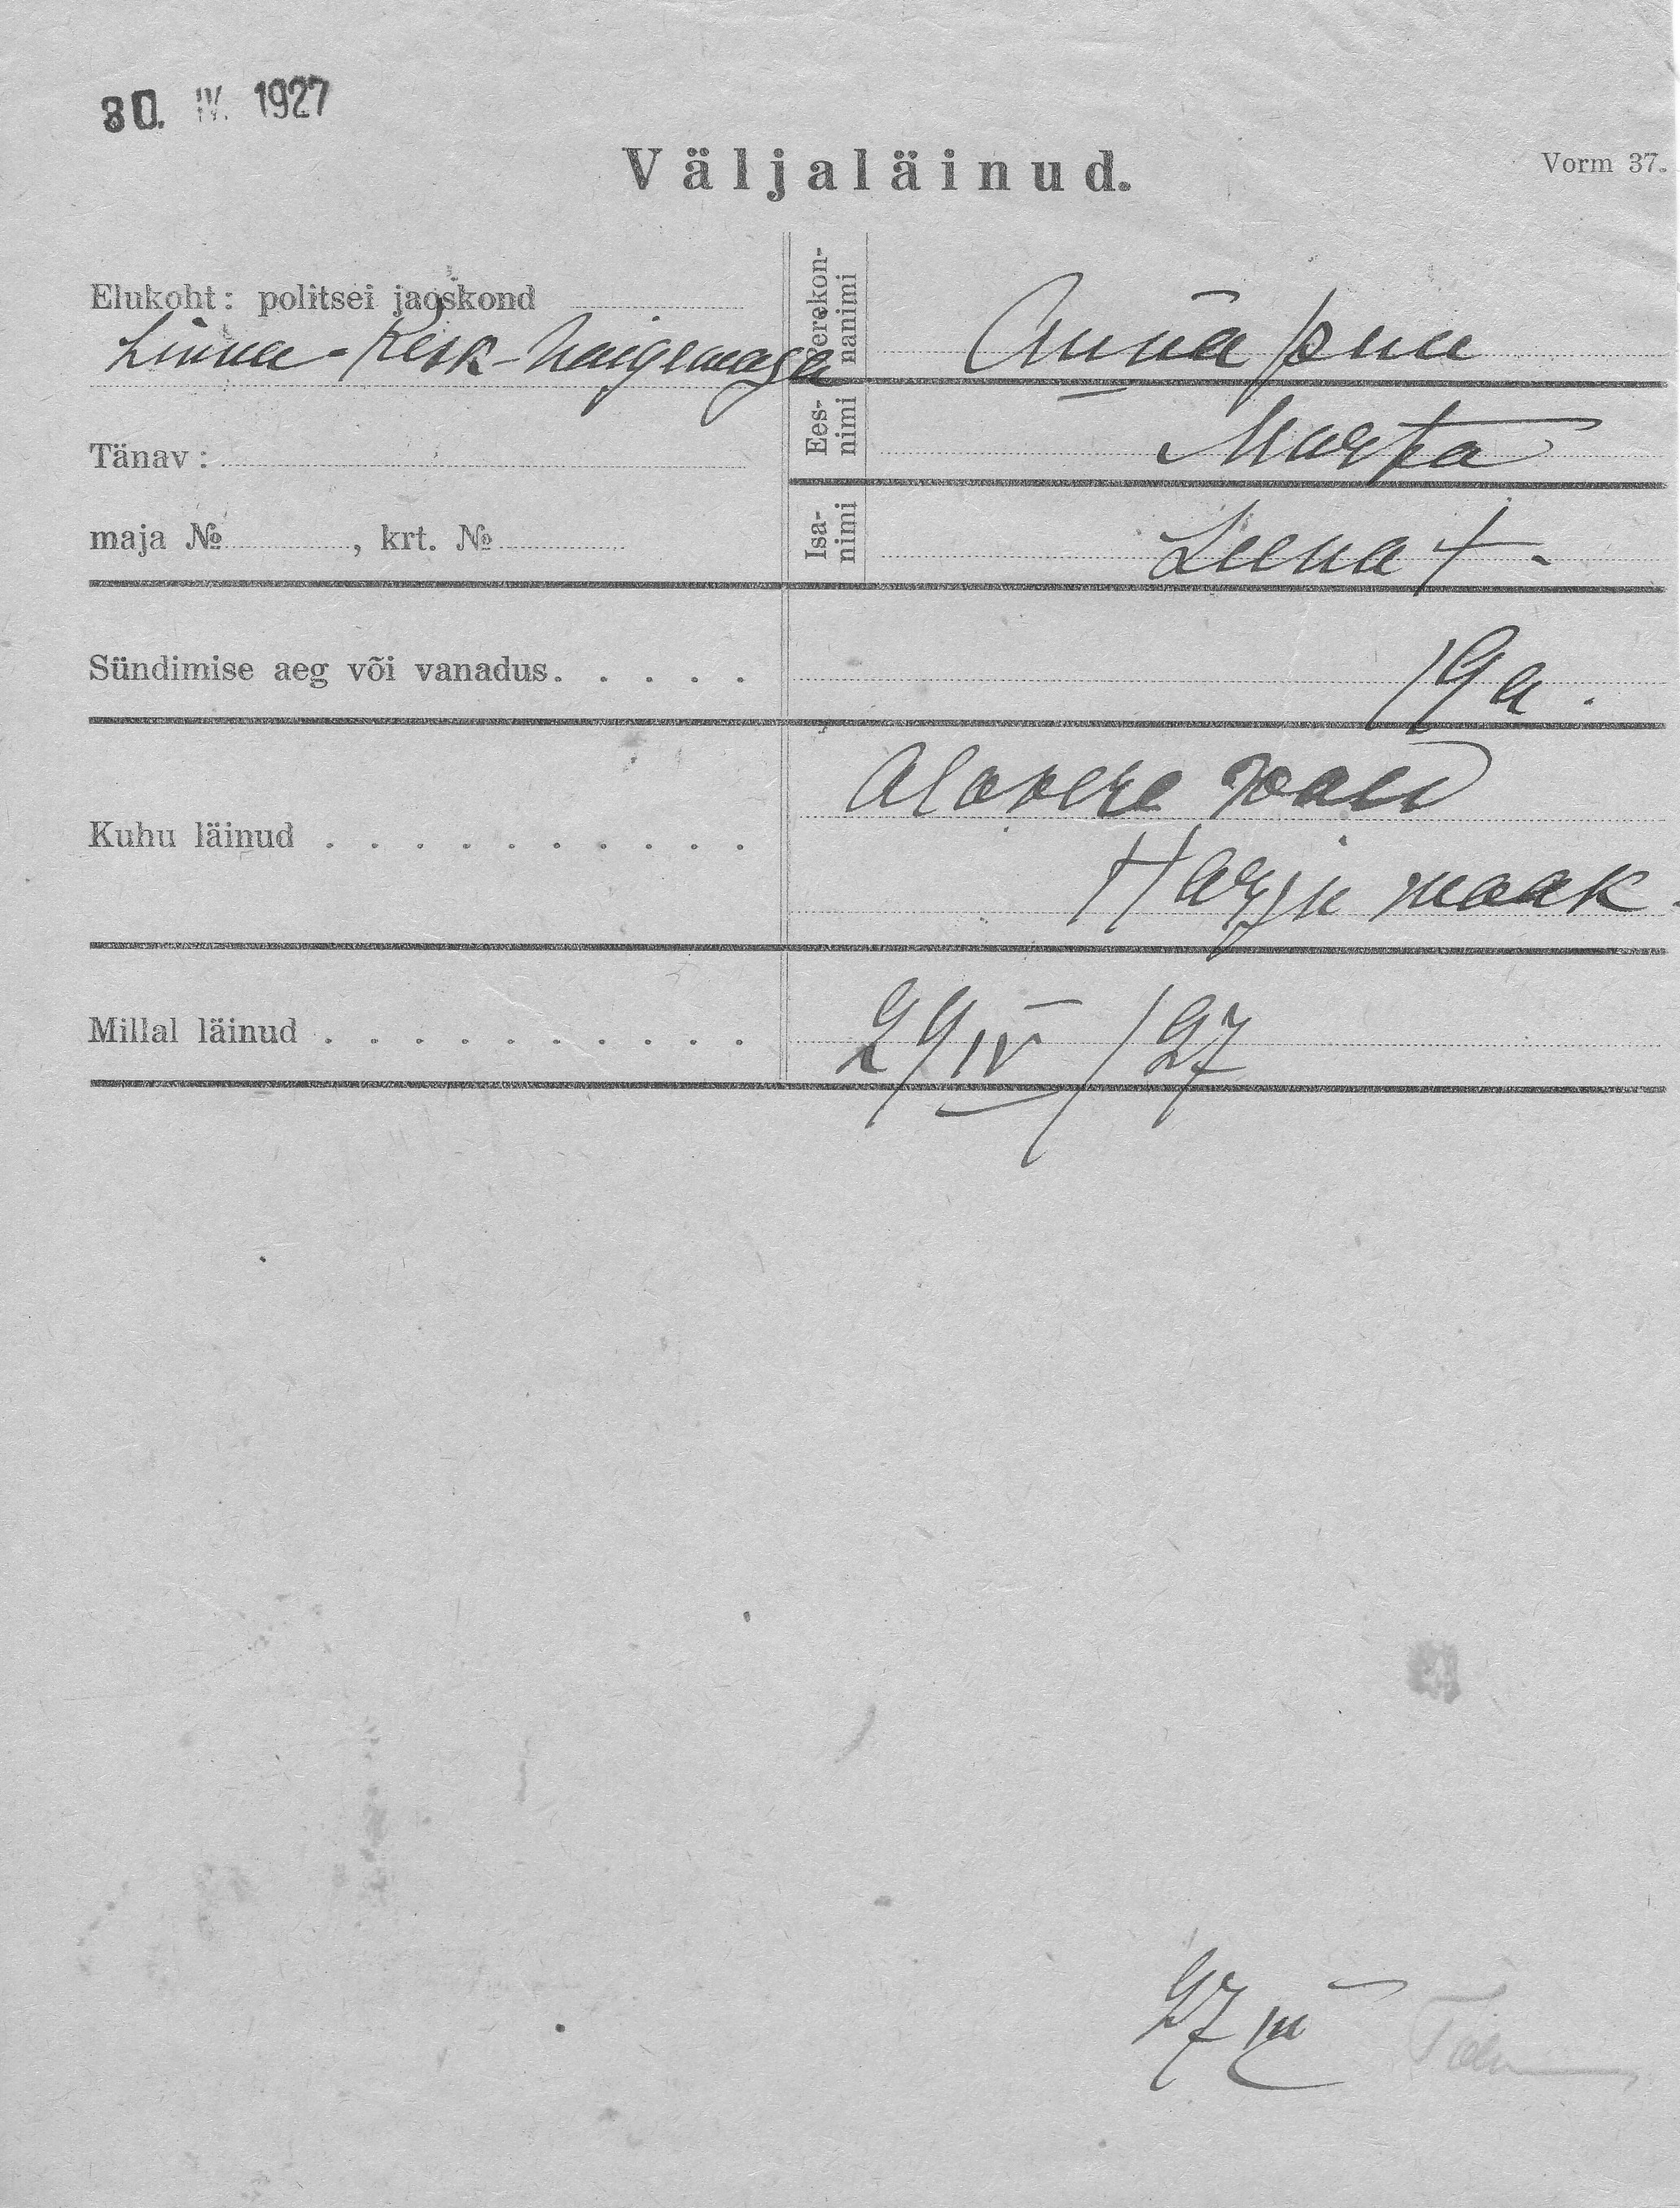 30. IV. 1927
Väljaläinud.
Vorm 37.
Elukoht: politsei jaoskond
Linna-Kesk-haigemaja
Tänav:
maja №, krt. №
Perekon-
nanimi
Annapuu
Ees-
nimi
Marta
Isa-
nimi
Leena t-
Sündimise aeg või vanadus.....
19 a.
Kuhu läinud..........
Alavere vald
Harju maak.
Millal läinud..........
29/IV/27
27 III